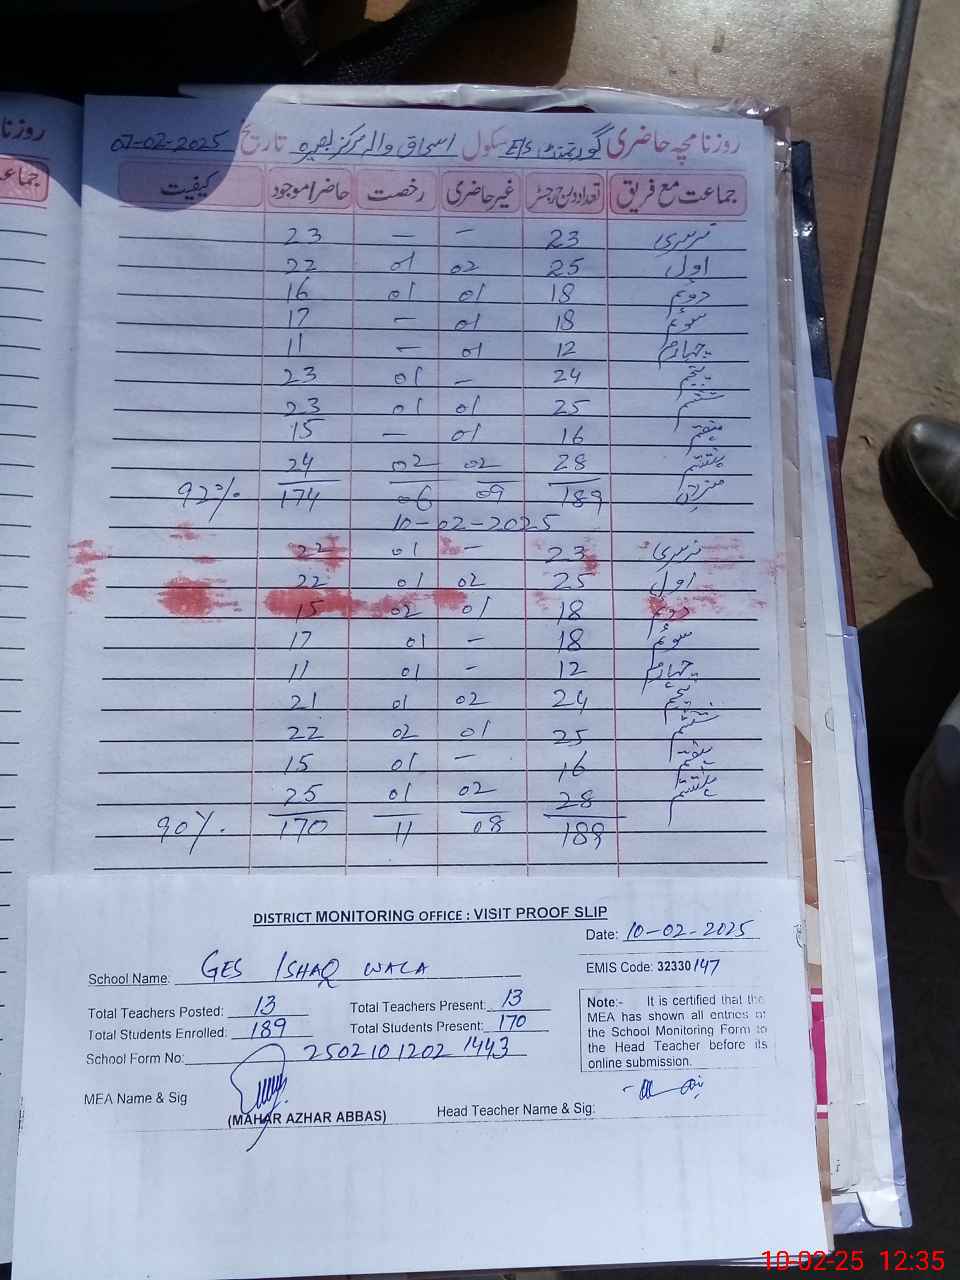 روزنا
جماعت
روزنامچہ حاضری گورنمنٹ E/S سکول اسحاق والہ مرکز بصیرہ تاریخ 07-02-2025
جماعت مع فریق تعداد درج رجسٹر غیر حاضری رخصت حاضر/موجود کیفیت
نرسری 23 — — 23
اول 25 02 01 22
دوئم 18 01 01 16
سوئم 18 01 — 17
چہارم 12 01 — 11
پنجم 24 — 01 23
ششم 25 01 01 23
ہفتم 16 01 — 15
ہشتم 28 02 02 24
میزان 189 09 06 174 92%
10-02-2025
نرسری 23 — 01 22
اول 25 02 01 22
دوئم 18 01 02 15
سوئم 18 — 01 17
چہارم 12 — 01 11
پنجم 24 02 01 21
ششم 25 01 02 22
ہفتم 16 — 01 15
ہشتم 28 02 01 25
189 08 11 170 90%
DISTRICT MONITORING OFFICE : VISIT PROOF SLIP
Date: 10-02-2025
School Name: GES ISHAQ WALA
EMIS Code: 32330147
Total Teachers Posted: 13 Total Teachers Present: 13
Total Students Enrolled: 189 Total Students Present: 170
School Form No: 25021012021443
Note:- It is certified that the
MEA has shown all entries of
the School Monitoring Form to
the Head Teacher before its
online submission.
MEA Name & Sig
(MAHAR AZHAR ABBAS)
Head Teacher Name & Sig:
10-02-25 12:35